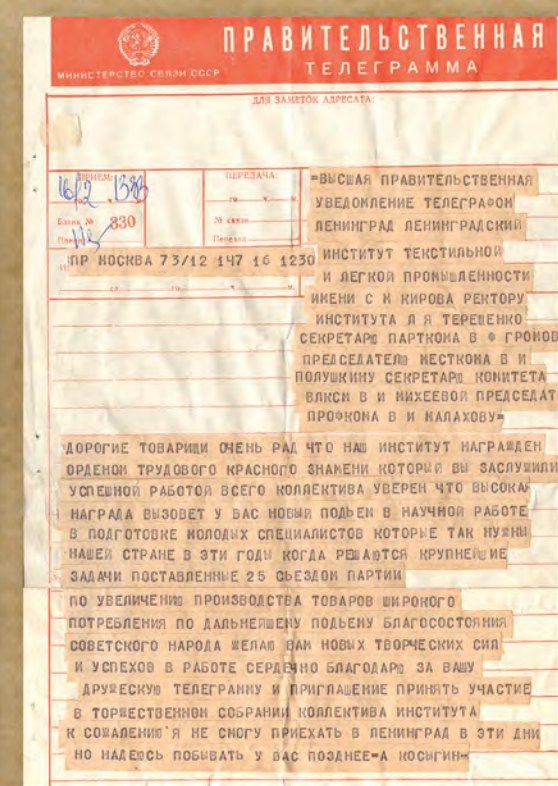 ПРАВИТЕЛЬСТВЕННАЯ
ТЕЛЕГРАММА
МИНИСТЕРСТВО СВЯЗИ СССР
ДЛЯ ЗАМЕТОК АДРЕСАТА:
ПРИЕМ:
16/2 1383
Бланк № 330
ПЕРЕДАЧА:
го ч. м.
№ связи
Передал
ПР МОСКВА 73/12 147 16 1230
=ВЫСШАЯ ПРАВИТЕЛЬСТВЕННАЯ
УВЕДОМЛЕНИЕ ТЕЛЕГРАФОМ
ЛЕНИНГРАД ЛЕНИНГРАДСКИЙ
ИНСТИТУТ ТЕКСТИЛЬНОЙ
И ЛЕГКОЙ ПРОМЫШЛЕННОСТИ
ИМЕНИ С М КИРОВА РЕКТОРУ
ИНСТИТУТА Л Я ТЕРЕЩЕНКО
СЕКРЕТАРЮ ПАРТКОМА В Ф ГРОМОВ
ПРЕДСЕДАТЕЛЮ МЕСТКОМА В И
ПОЛУШКИНУ СЕКРЕТАРЮ КОМИТЕТА
ВЛКСМ В И МИХЕЕВОЙ ПРЕДСЕДАТ
ПРОФКОМА В И МАЛАХОВУ=
ДОРОГИЕ ТОВАРИЩИ ОЧЕНЬ РАД ЧТО НАШ ИНСТИТУТ НАГРАЖДЕН
ОРДЕНОМ ТРУДОВОГО КРАСНОГО ЗНАМЕНИ КОТОРЫЙ ВЫ ЗАСЛУЖИЛИ
УСПЕШНОЙ РАБОТОЙ ВСЕГО КОЛЛЕКТИВА УВЕРЕН ЧТО ВЫСОКАЯ
НАГРАДА ВЫЗОВЕТ У ВАС НОВЫЙ ПОДЬЕМ В НАУЧНОЙ РАБОТЕ
В ПОДГОТОВКЕ МОЛОДЫХ СПЕЦИАЛИСТОВ КОТОРЫЕ ТАК НУЖНЫ
НАШЕЙ СТРАНЕ В ЭТИ ГОДЫ КОГДА РЕШАЮТСЯ КРУПНЕЙШИЕ
ЗАДАЧИ ПОСТАВЛЕННЫЕ 25 СЬЕЗДОМ ПАРТИИ
ПО УВЕЛИЧЕНИЮ ПРОИЗВОДСТВА ТОВАРОВ ШИРОКОГО
ПОТРЕБЛЕНИЯ ПО ДАЛЬНЕЙШЕМУ ПОДЬЕМУ БЛАГОСОСТОЯНИЯ
СОВЕТСКОГО НАРОДА ЖЕЛАЮ ВАМ НОВЫХ ТВОРЧЕСКИХ СИЛ
И УСПЕХОВ В РАБОТЕ СЕРДЕЧНО БЛАГОДАРЮ ЗА ВАШУ
ДРУЖЕСКУЮ ТЕЛЕГРАММУ И ПРИГЛАШЕНИЕ ПРИНЯТЬ УЧАСТИЕ
В ТОРЖЕСТВЕННОМ СОБРАНИИ КОЛЛЕКТИВА ИНСТИТУТА
К СОЖАЛЕНИЮ Я НЕ СМОГУ ПРИЕХАТЬ В ЛЕНИНГРАД В ЭТИ ДНИ
НО НАДЕЮСЬ ПОБЫВАТЬ У ВАС ПОЗДНЕЕ=А КОСЫГИН=